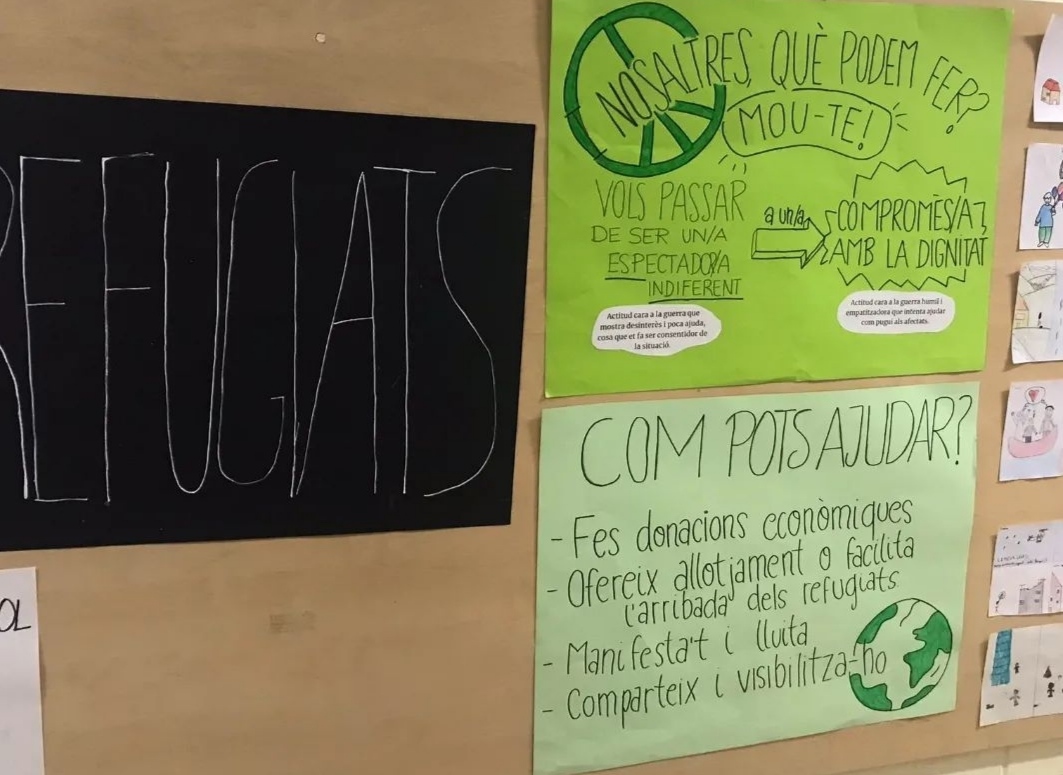 REFUGIATS
NOSALTRES, QUÈ PODEM FER?
MOU-TE!
VOLS PASSAR
DE SER UN/A
ESPECTADOR/A
INDIFERENT
a un/a
COMPROMÈS/A
AMB LA DIGNITAT
Actitud cara a la guerra que
mostra desinterès i poca ajuda,
cosa que et fa ser consentidor de
la situació.
Actitud cara a la guerra humil i
empatitzadora que intenta ajudar
com pugui als afectats.
COM POTS AJUDAR?
- Fes donacions econòmiques
- Ofereix allotjament o facilita
l'arribada dels refugiats
- Manifesta't i lluita
- Comparteix i visibilitza-ho
OL